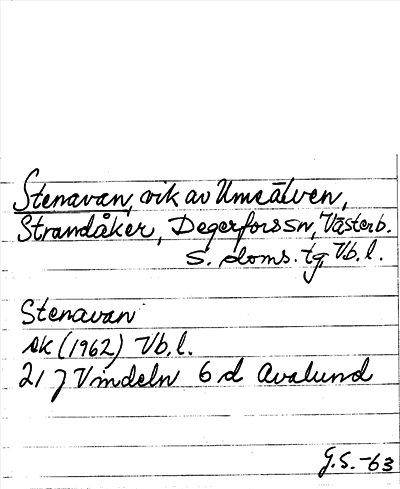 Stenavan, vik av Umeälven,
Strandåker, Degerfors sn, Västerb.
s. doms. tg, Vb. l.
Stenavan
ek (1962) Vb. l.
21 J Vindeln 6 d Avalund
G.S. -63